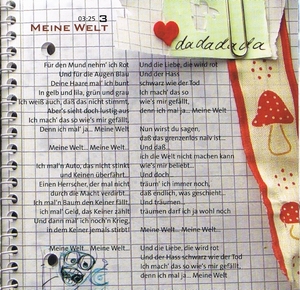 03:25 3
MEINE WELT
dadadada
Für den Mund nehm' ich Rot
Und für die Augen Blau
Deine Haare mal' ich bunt
In gelb und lila, grün und grau
Ich weiß auch, daß das nicht stimmt,
Aber's sieht doch lustig aus
Ich mach' das so wie's mir gefällt,
Denn ich mal' ja... Meine Welt
Meine Welt... Meine Welt...
Ich mal'n Auto, das nicht stinkt
und Keinen überfährt...
Einen Herrscher, der mal nicht
durch die Macht verdirbt...
Ich mal'n Baum den Keiner fällt,
ich mal' Geld, das Keiner zählt
Und dann mal' ich noch'n Krieg,
in dem Keiner jemals stirbt!
Meine Welt... Meine Welt...
Und die Liebe, die wird rot
Und der Hass
schwarz wie der Tod
Ich mach' das so
wie's mir gefällt,
denn ich mal ja... Meine Welt
Nun wirst du sagen,
daß das grenzenlos naiv ist...
Und daß..
ich die Welt nicht machen kann
wie's mir beliebt...
Und doch..
träum' ich immer noch,
daß endlich, was geschieht...
Und träumen...
träumen darf ich ja wohl noch
Meine Welt... Meine Welt...
Und die Liebe, die wird rot
Und der Hass schwarz wie der Tod
Ich mach' das so wie's mir gefällt,
denn ich mal ja... Meine Welt